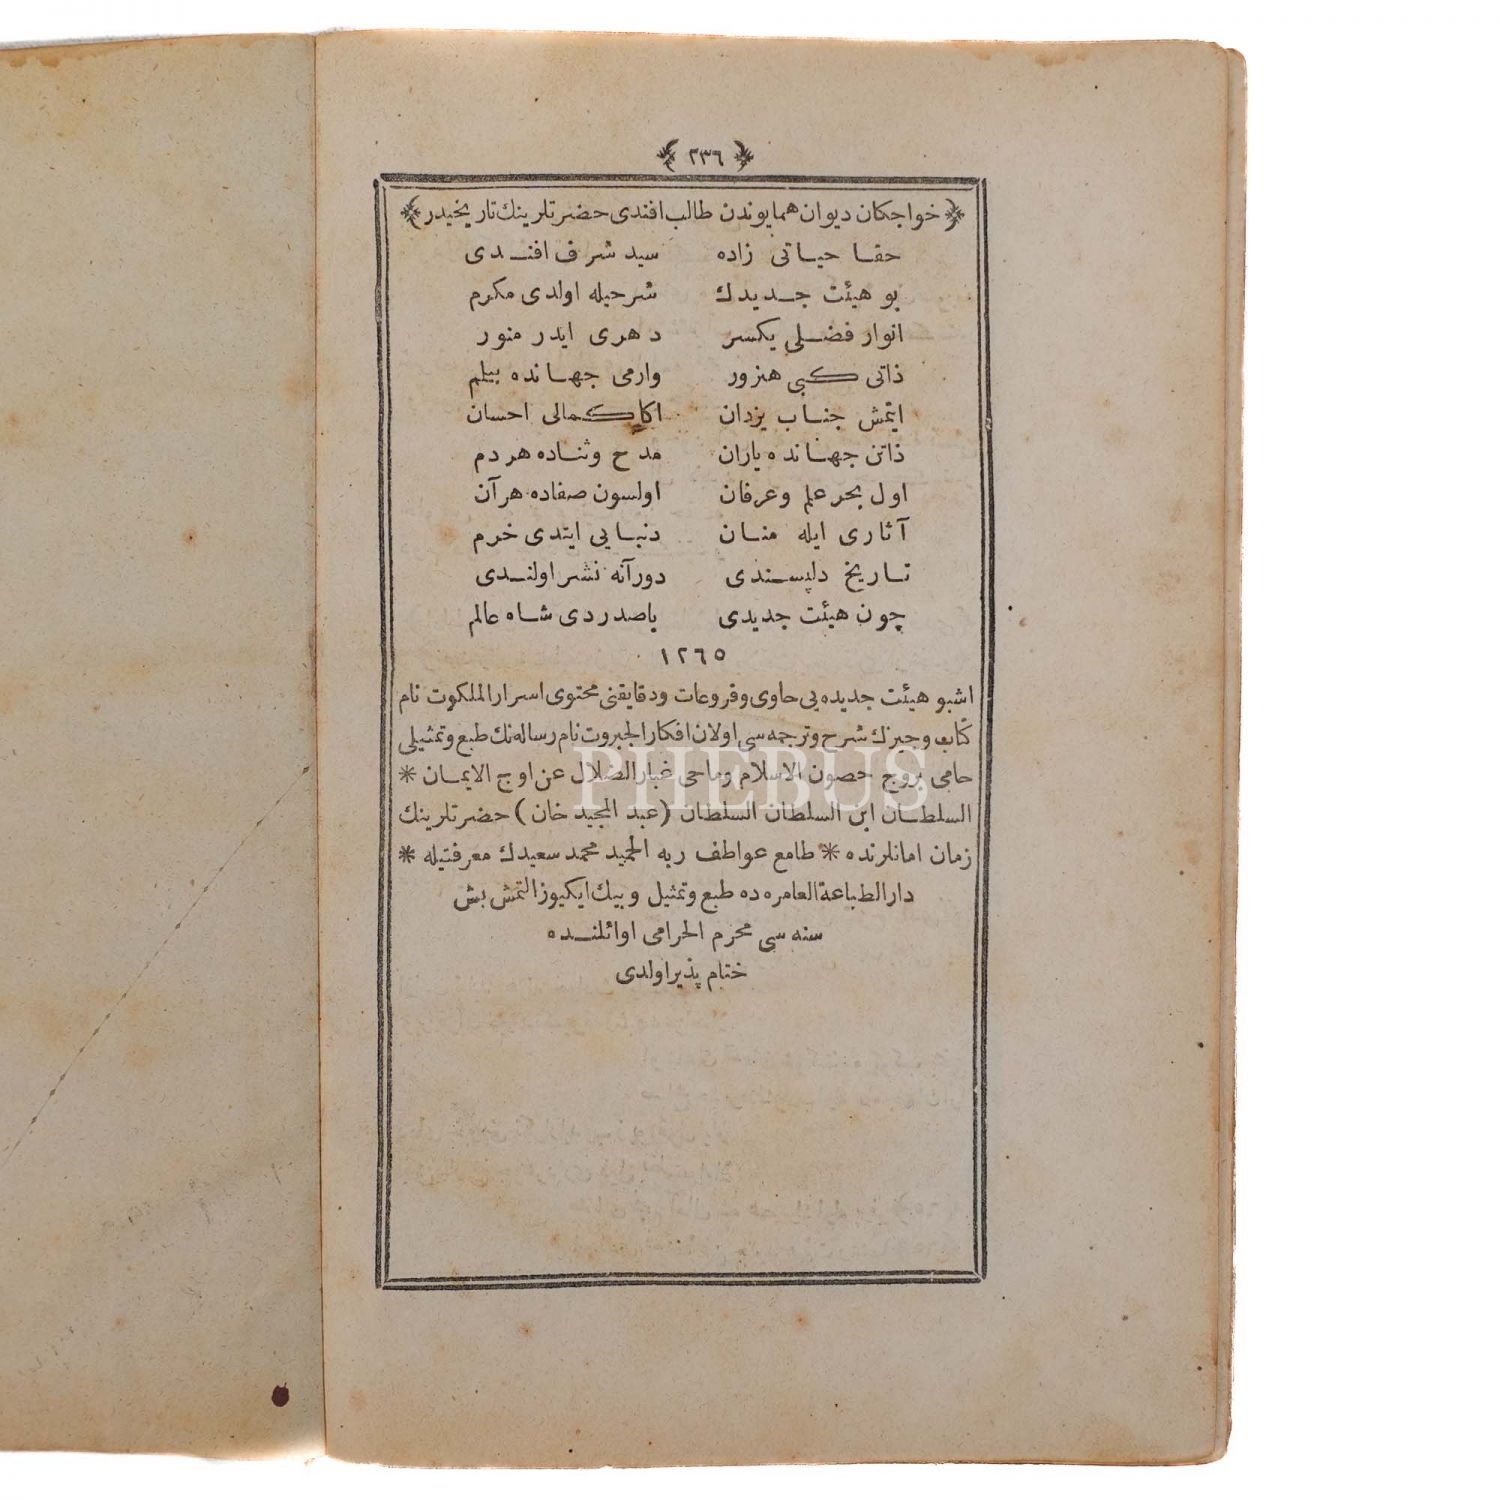 ﴿ ٢٣٦ ﴾
﴿ خواجكان ديوان همايوندن طالب افندى حضرتلرينك تاريخيدر ﴾
حقا حياتى زاده سيد شرف افندى
بو هيئت جديدك شرحيله اولدى مكرم
انوار فضلى يكسر دهرى ايدر منور
ذاتى كبى هنرور وارمى جهانده بيلم
ايتمش جناب يزدان اكا كمالى احسان
ذاتن جهانده ياران مدح وثناده هردم
اول بحر علم وعرفان اولسون صفاده هرآن
آثارى ايله منان دنيايى ايتدى خرم
تاريخ دلپسندى دورآنه نشر اولندى
چون هيئت جديدى ياصدردى شاه عالم
١٢٦٥
اشبو هيئت جديده يى حاوى وفروعات ودقايقنى محتوى اسرار الملكوت نام
كتاب وجيزك شرح وترجمه سى اولان افكار الجبروت نام رساله نك طبع وتمثيلى
حامى بروج حصون الاسلام وماحى غبار الضلال عن اوج الايمان *
السلطان ابن السلطان السلطان (عبد المجيد خان) حضرتلرينك
زمان امانلرنده * طامع عواطف ربه الحميد محمد سعيدك معرفتيله *
دار الطباعة العامره ده طبع وتمثيل وبيك ايكيوز التمش بش
سنه سى محرم الحرامى اوائلنده
ختام پذير اولدى
PHEBUS